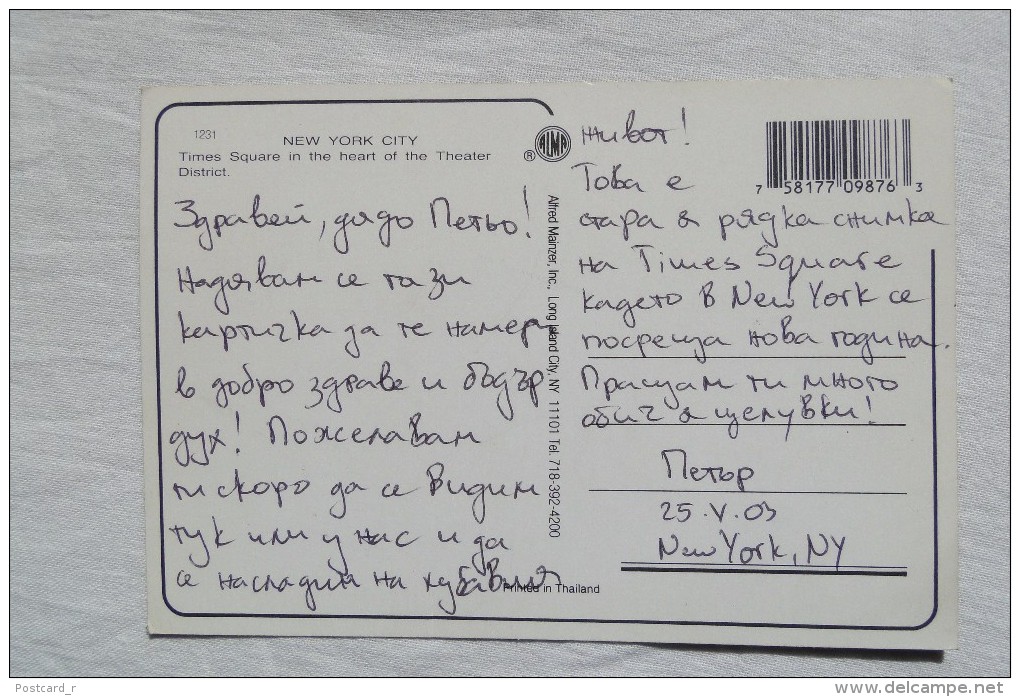 1231
NEW YORK CITY
Times Square in the heart of the Theater
District.
Здравей, дядо Петьо!
Надявам се тази
картичка да те намери
в добро здраве и бодър
дух! Пожелавам
ти скоро да се видим
тук или у нас и да
се насладим на хубавия
ALMA
®
Alfred Mainzer, Inc., Long Island City, NY 11101 Tel. 718-392-4200
Printed in Thailand
живот!
Това е
стара и рядка снимка
на Times Square
където в New York се
посреща нова година.
Пращам ти много
обич и целувки!
Петър
25.V.03
New York, NY
7 58177 09876 3
Postcard_r
www.delcampe.net